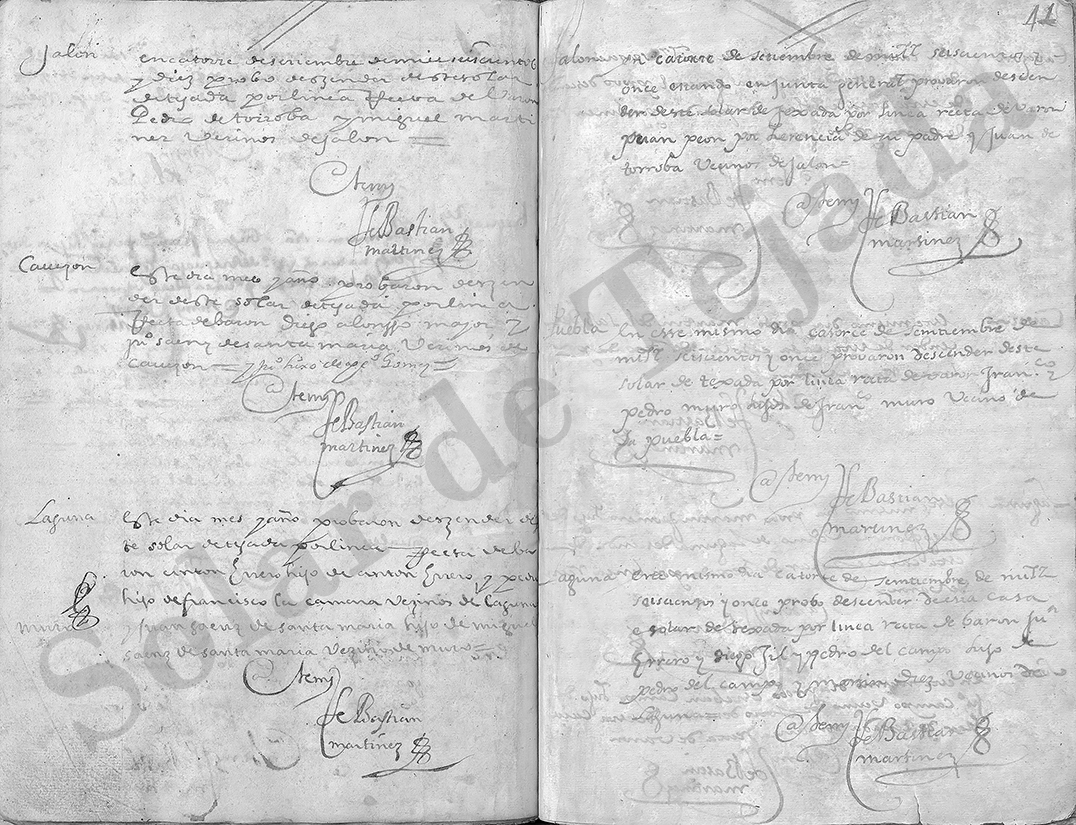 41
Jalon
en catorce de setiembre de mill y seiscientos
y diez probo deszender deste solar
de tejada por linea Recta de Varon
Pedro de toroba y miguel marti
nez Vezinos de Jalon
Ante mi
Se Bastian
martinez
Cauezon
Este dia mes y año probaron deszen
der deste solar de tejada por linea
Recta de baron diego alonsso major y
juº saenz de santa maria Vezinos de
Cauezon
Ante mi
Se Bastian
martinez
Laguna
Este dia mes y año probaron deszender des
te solar de tejada por linea Recta de ba
ron anton Errero hijo de anton Errero y pedro
hijo de francisco la camara Vezinos de Laguna
muro
y juan saenz de santa maria hijo de miguel
saenz de santa maria Vezino de muro
Ante mi
Se Bastian
martinez
Jalon
en catorce de setiembre de mill seiscientos y
once estando en junta general provaron desen
der deste solar de texada por linea recta de varon
juan peon por herencia de su padre y Juan de
torroba Vecinos de Jalon
Ante mi
Se Bastian
martinez
Puebla
En esse mismo dia catorce de semtiembre de
mill seiscientos y once provaron descender deste
solar de texada por linea recta de varon Franco y
pedro muro hijos de Franº muro Vecino de
la puebla
Ante mi
Se Bastian
martinez
Laguna
En el mismo dia catorce de semtiembre de mill
seiscientos y once probo descender desta casa
e solar de texada por linea recta de baron Juº
Errero y diego Jil y pedro del campo hijo de
pedro del campo y martin diez Vecinos de
Ante mi
Se Bastian
martinez
Solar de Tejada